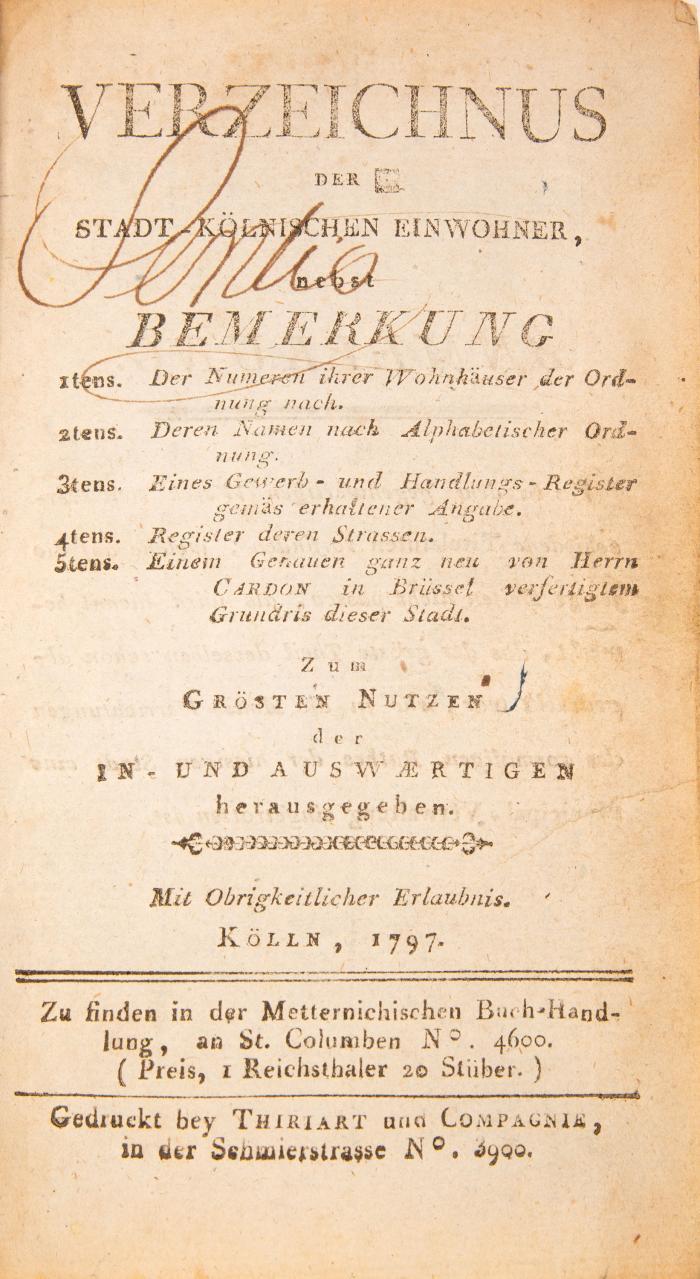 VERZEICHNUS
DER
STADT-KÖLNISCHEN EINWOHNER,
nebst
BEMERKUNG
1tens. Der Numeren ihrer Wohnhäuser der Ord-
nung nach.
2tens. Deren Namen nach Alphabetischer Ord-
nung.
3tens. Eines Gewerb- und Handlungs-Register
gemäs erhaltener Angabe.
4tens. Register deren Strassen.
5tens. Einem Genauen ganz neu von Herrn
CARDON in Brüssel verfertigtem
Grundris dieser Stadt.
Zum
GRÖSTEN NUTZEN
der
IN- UND AUSWÆRTIGEN
herausgegeben.
Mit Obrigkeitlicher Erlaubnis.
KÖLLN, 1797.
Zu finden in der Metternichischen Buch-Hand-
lung, an St. Columben Nº. 4600.
( Preis, 1 Reichsthaler 20 Stüber. )
Gedruckt bey THIRIART und COMPAGNIE,
in der Schmierstrasse Nº. 3900.